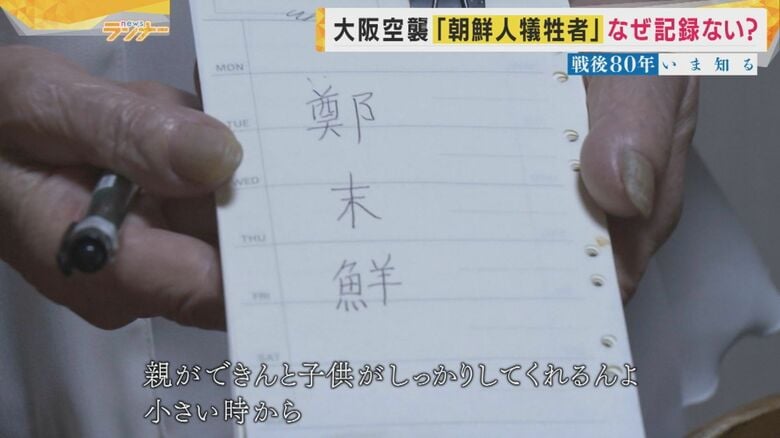 news
ランナー
大阪空襲「朝鮮人犠牲者」なぜ記録ない?
戦後80年 いま知る
MON
TUE
WED
THU
FRI
SAT
鄭
末
鮮
親ができんと子供がしっかりしてくれるんよ
小さい時から